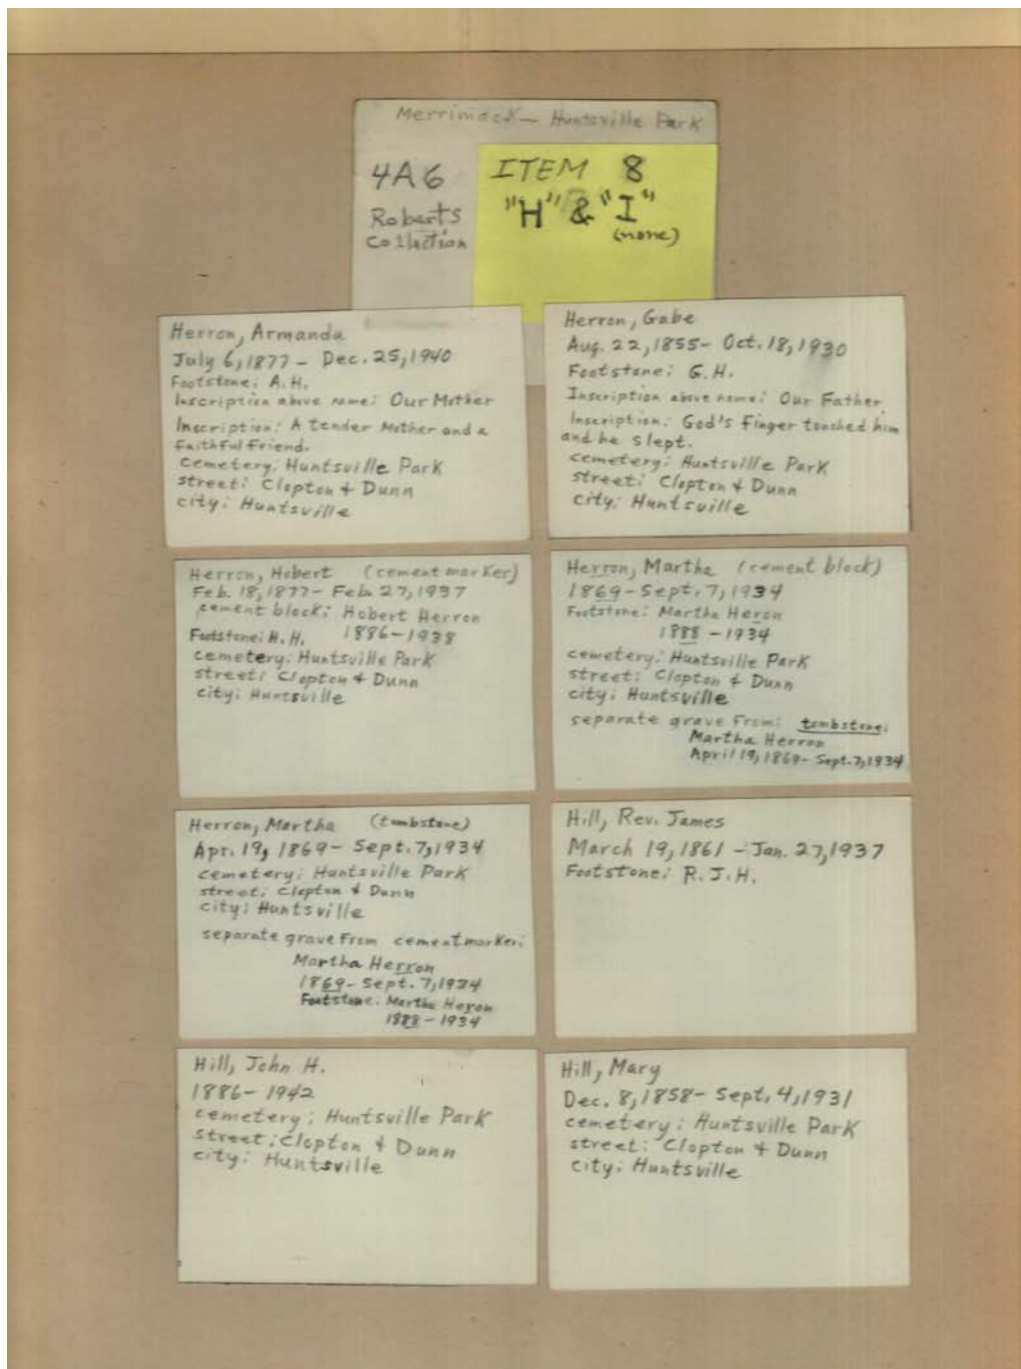 Merrimack — Huntsville Park
4A6
Roberts
Collection
ITEM 8
"H" & "I"
(none)
Herron, Armanda
July 6, 1877 - Dec. 25, 1940
Footstone: A.H.
Inscription above name: Our Mother
Inscription: A tender Mother and a
faithful friend.
cemetery: Huntsville Park
street: Clopton & Dunn
city: Huntsville
Herron, Gabe
Aug. 22, 1855 - Oct. 18, 1930
Footstone: G.H.
Inscription above name: Our Father
Inscription: God's finger touched him
and he slept.
cemetery: Huntsville Park
street: Clopton & Dunn
city: Huntsville
Herron, Hobert (cement marker)
Feb. 18, 1877 - Feb. 27, 1937
cement block: Hobert Herron
Footstone: H.H. 1886-1938
cemetery: Huntsville Park
street: Clopton & Dunn
city: Huntsville
Herron, Martha (cement block)
1869 - Sept. 7, 1934
Footstone: Martha Heron
1888 - 1934
cemetery: Huntsville Park
street: Clopton & Dunn
city: Huntsville
separate grave from: tombstone:
Martha Herron
April 19, 1869 - Sept. 7, 1934
Herron, Martha (tombstone)
Apr. 19, 1869 - Sept. 7, 1934
cemetery: Huntsville Park
street: Clopton & Dunn
city: Huntsville
separate grave from cement marker:
Martha Herron
1869 - Sept. 7, 1934
Footstone: Martha Heron
1888 - 1934
Hill, Rev. James
March 19, 1861 - Jan. 27, 1937
Footstone: R.J.H.
Hill, John H.
1886 - 1942
cemetery: Huntsville Park
street: Clopton & Dunn
city: Huntsville
Hill, Mary
Dec. 8, 1858 - Sept. 4, 1931
cemetery: Huntsville Park
street: Clopton & Dunn
city: Huntsville